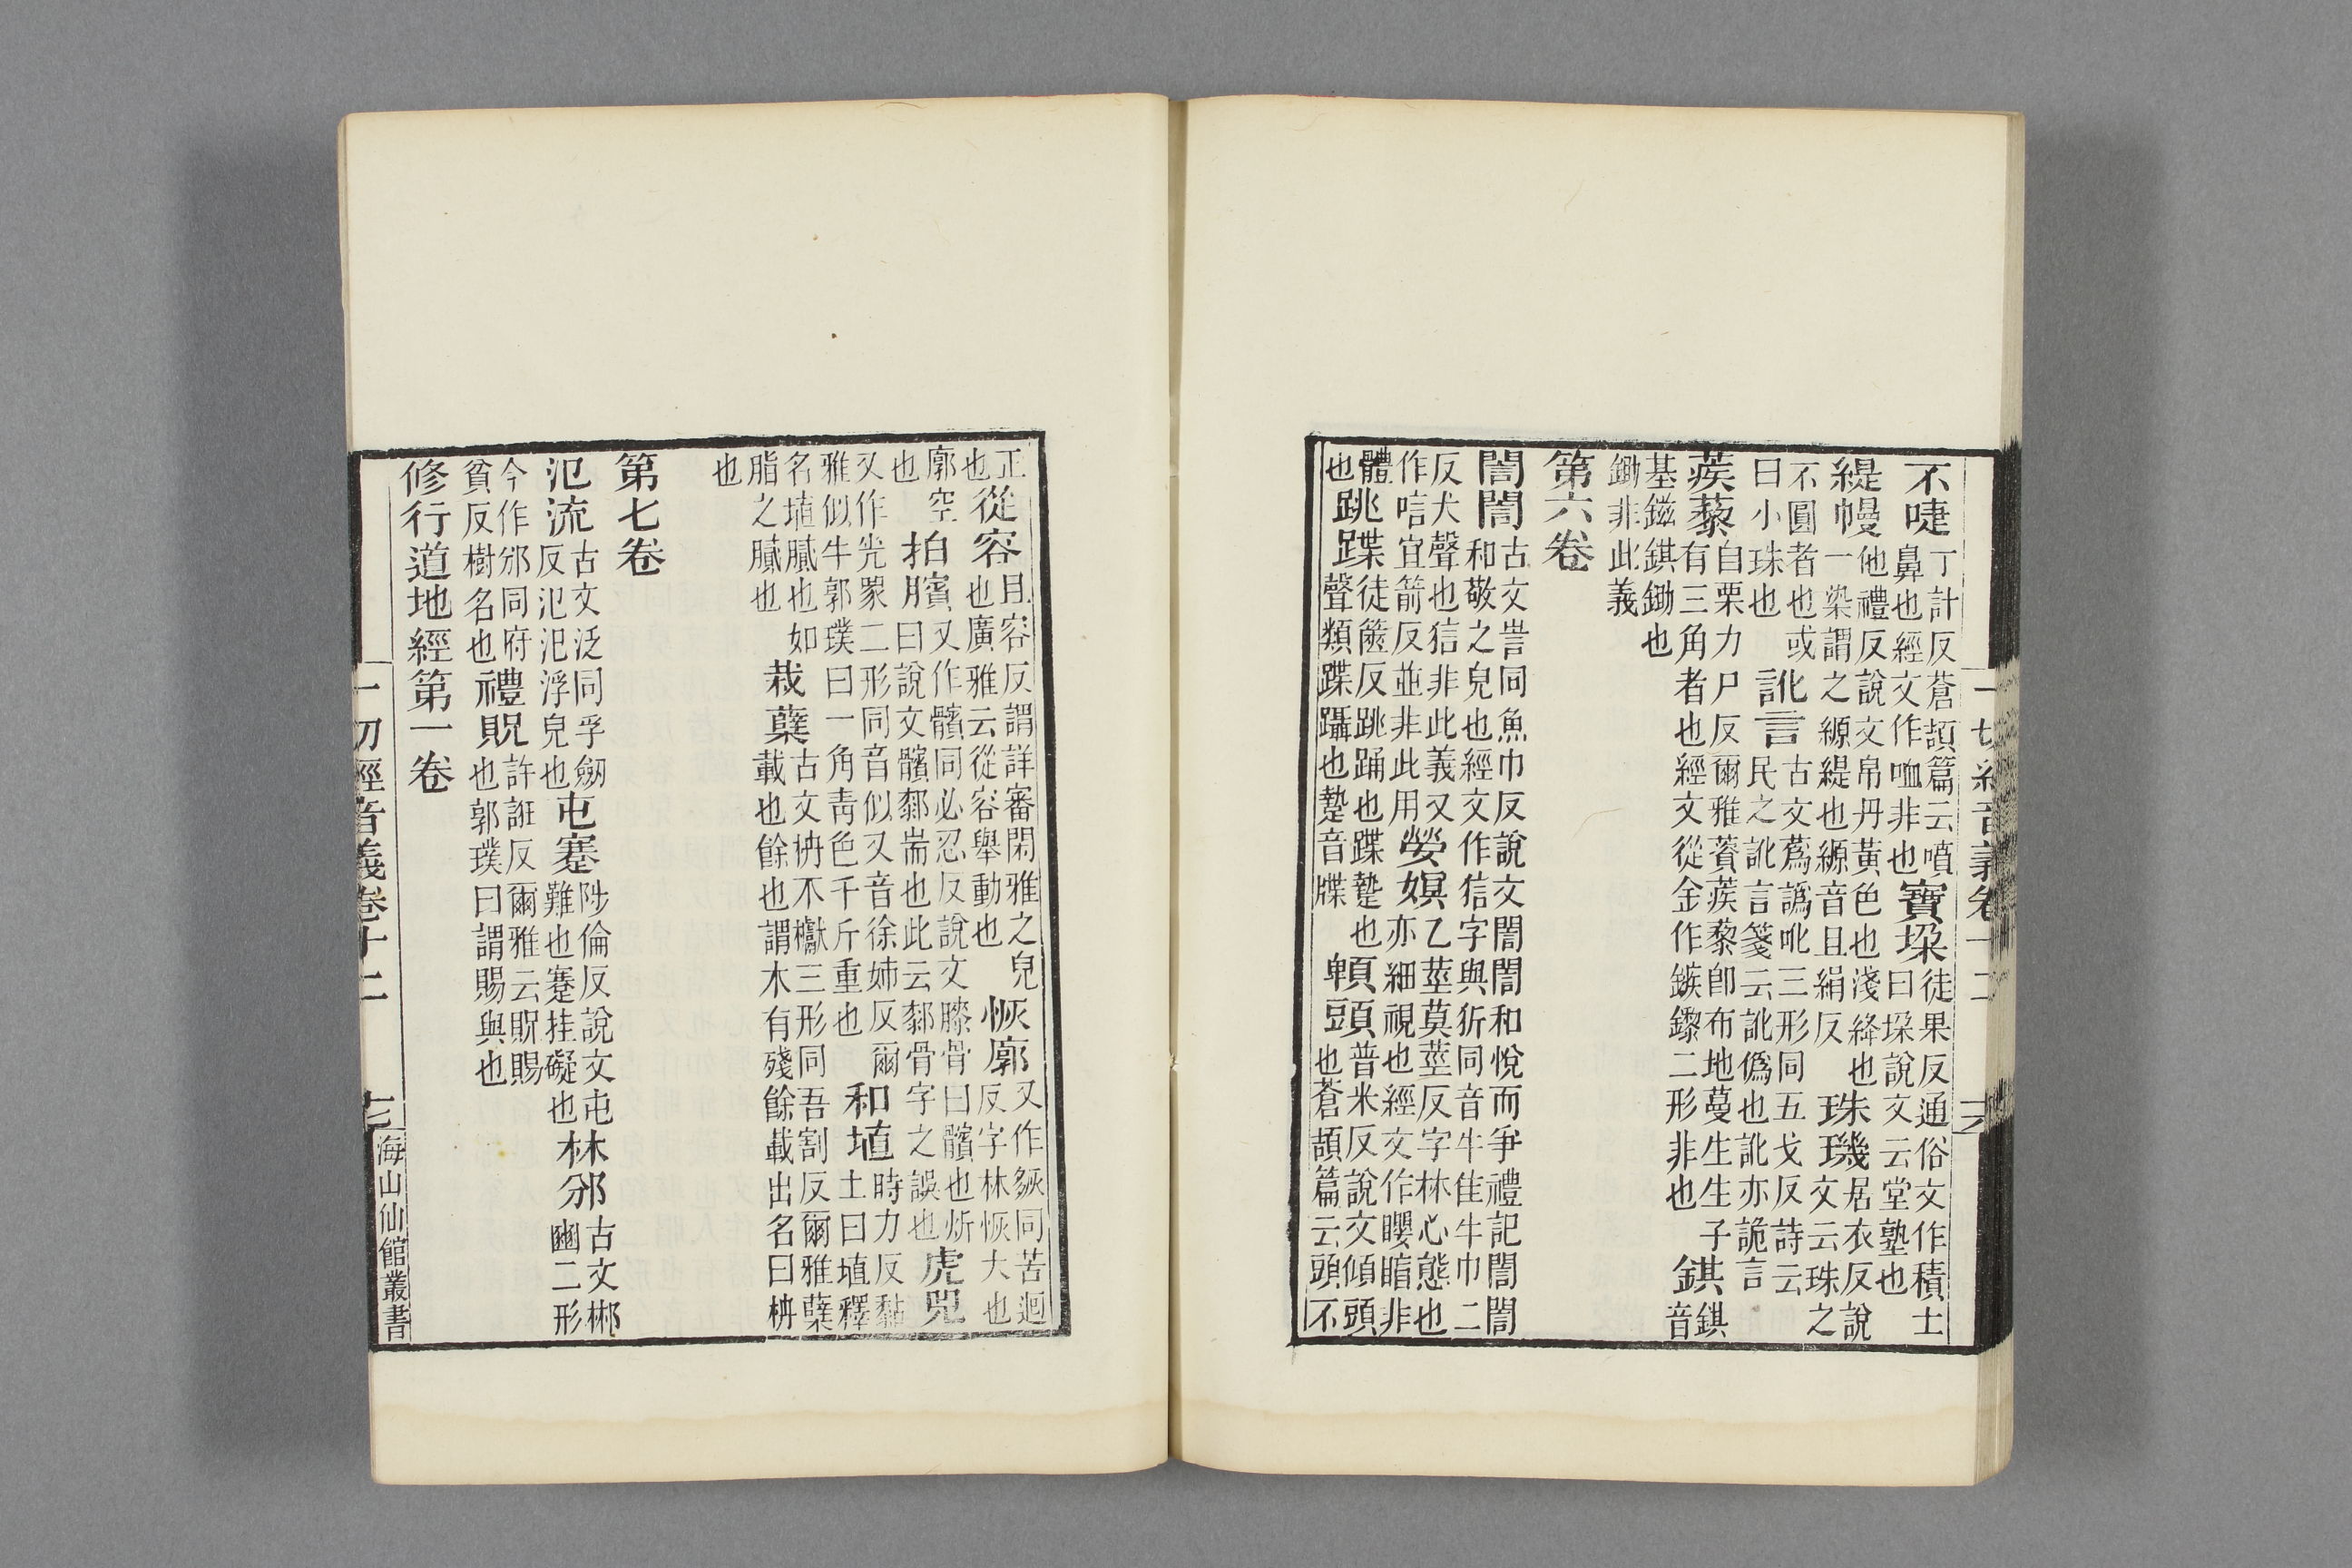 不啑丁計反蒼頡篇云噴鼻也經文作㗌非也寶垜徒果反通俗文作積土曰垜說文云堂塾也
緹幔他禮反說文帛丹黃色也淺絳也一染謂之縓緹也縓音且絹反珠璣居衣反說文云珠之
不圓者也或曰小珠也訛言古文蔿譌吪三形同五戈反詩云民之訛言箋云訛僞也訛亦詭言
蒺藜自栗力尸反爾雅薋蒺藜卽布地蔓生生子有三角者也經文從金作鏃鏫二形非也錤錤音
基鎡錤鋤也鋤非此義
第六卷
誾誾古文訔同魚巾反說文誾誾和悅而爭禮記誾誾和敬之皃也經文作狺字與㹞同音牛佳牛巾二
反犬聲也狺非此義又作唁宜箭反並非此用嫈嫇乙莖莫莖反字林心態也亦細視也經文作非
體也跳蹀徒篋反跳踊也蹀躄也聲類蹀躡也躄音牒頭普米反說文傾頭也蒼頡篇云頭不
一切經音義卷十二 十六
正也從容且容反謂詳審閑雅之皃也廣雅云從容舉動也恢廓又作同苦迴反字林恢大也
廓空也拍臏又作髕同必忍反說文膝骨曰髕也曰說文髕厀耑也此云厀骨字之誤也虎兕
又作光㲋二形同音似又音徐姊反爾雅似牛郭璞曰一角靑色千斤重也和埴時力反黏土曰埴釋
名埴膩也如脂之膩也栽蘖古文枿不櫱三形同吾割反爾雅蘖載也餘也謂木有殘餘載出名曰枿
也
第七卷
氾流古文泛同孚劒反氾氾浮皃也屯蹇陟倫反說文屯難也蹇挂礙也林邠古文郴豳二形
今作邠同府貧反樹名也禮貺許誑反爾雅云貺賜也郭璞曰謂賜與也
修行道地經第一卷
一切經音義卷十二 十七 海山仙館叢書